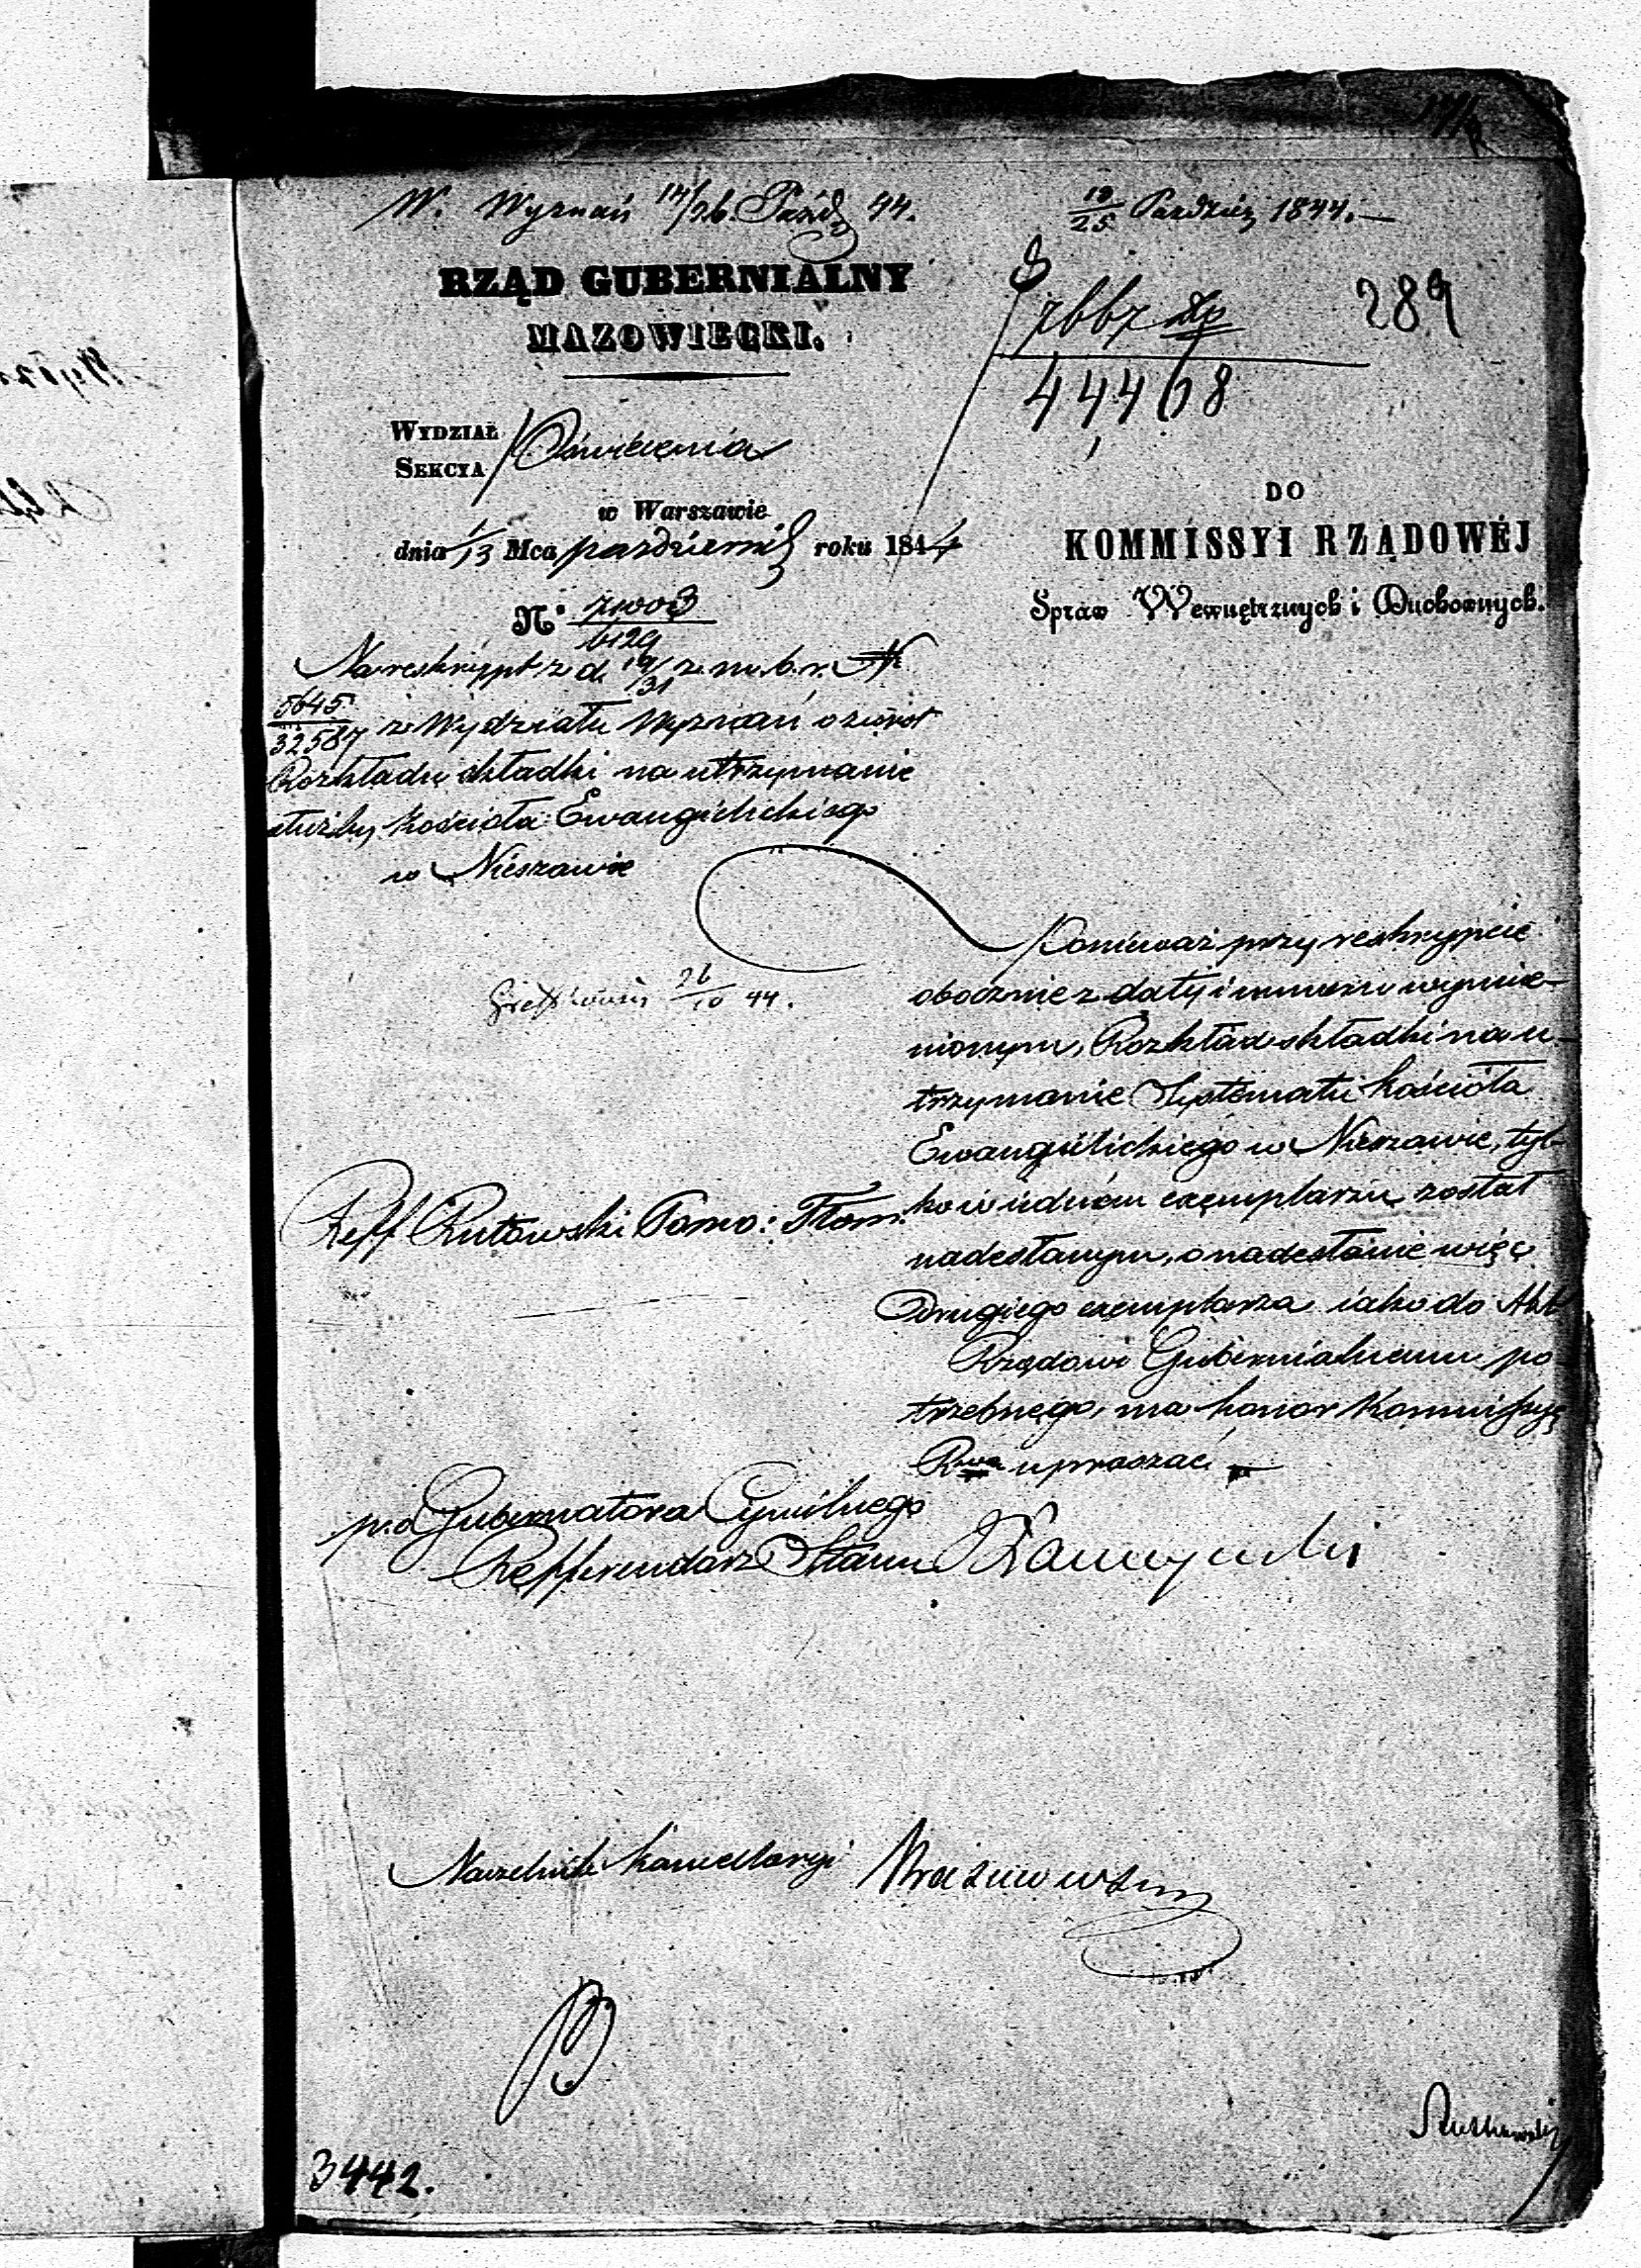 W. Wyznań 14/26 Paźd 44.
13/25 Paździer 1844.
RZĄD GUBERNIALNY
MAZOWIECKI.
7667
289
44468
WYDZIAŁ
SEKCYA
Oświecenia
w Warszawie
dnia 1/13 Mca październik roku 1844
DO
KOMMISSYI RZĄDOWÉJ
Spraw Wewnętrznych i Duchownych.
N°
6129
Na reskrypt z d. 19/31 z. m. b. r. N
5645/32587 z Wydziału Wyznań o zwrot
Rozkładu składki na utrzymanie
służby Kościoła Ewangielickiego
w Nieszawie
Ponieważ przy reskrypcie
obocznie z daty i numeru wymie-
nionym, Rozkład składki na u-
trzymanie Systematu kościoła
Ewangielickiego w Nieszawie, tyl-
ko w iedném exemplarzu został
nadesłanym, o nadesłanie więc
Drugiego exemplarza iako do Akt
Rządowi Gubernialnemu po
trzebnego, ma honor Kommissyę
Rwą upraszać
26/10 44.
Reff Rutowski
p.o Gubernatora Cywilnego
Refferendarz Stanu
Naczelnik Kancellaryi
3442.